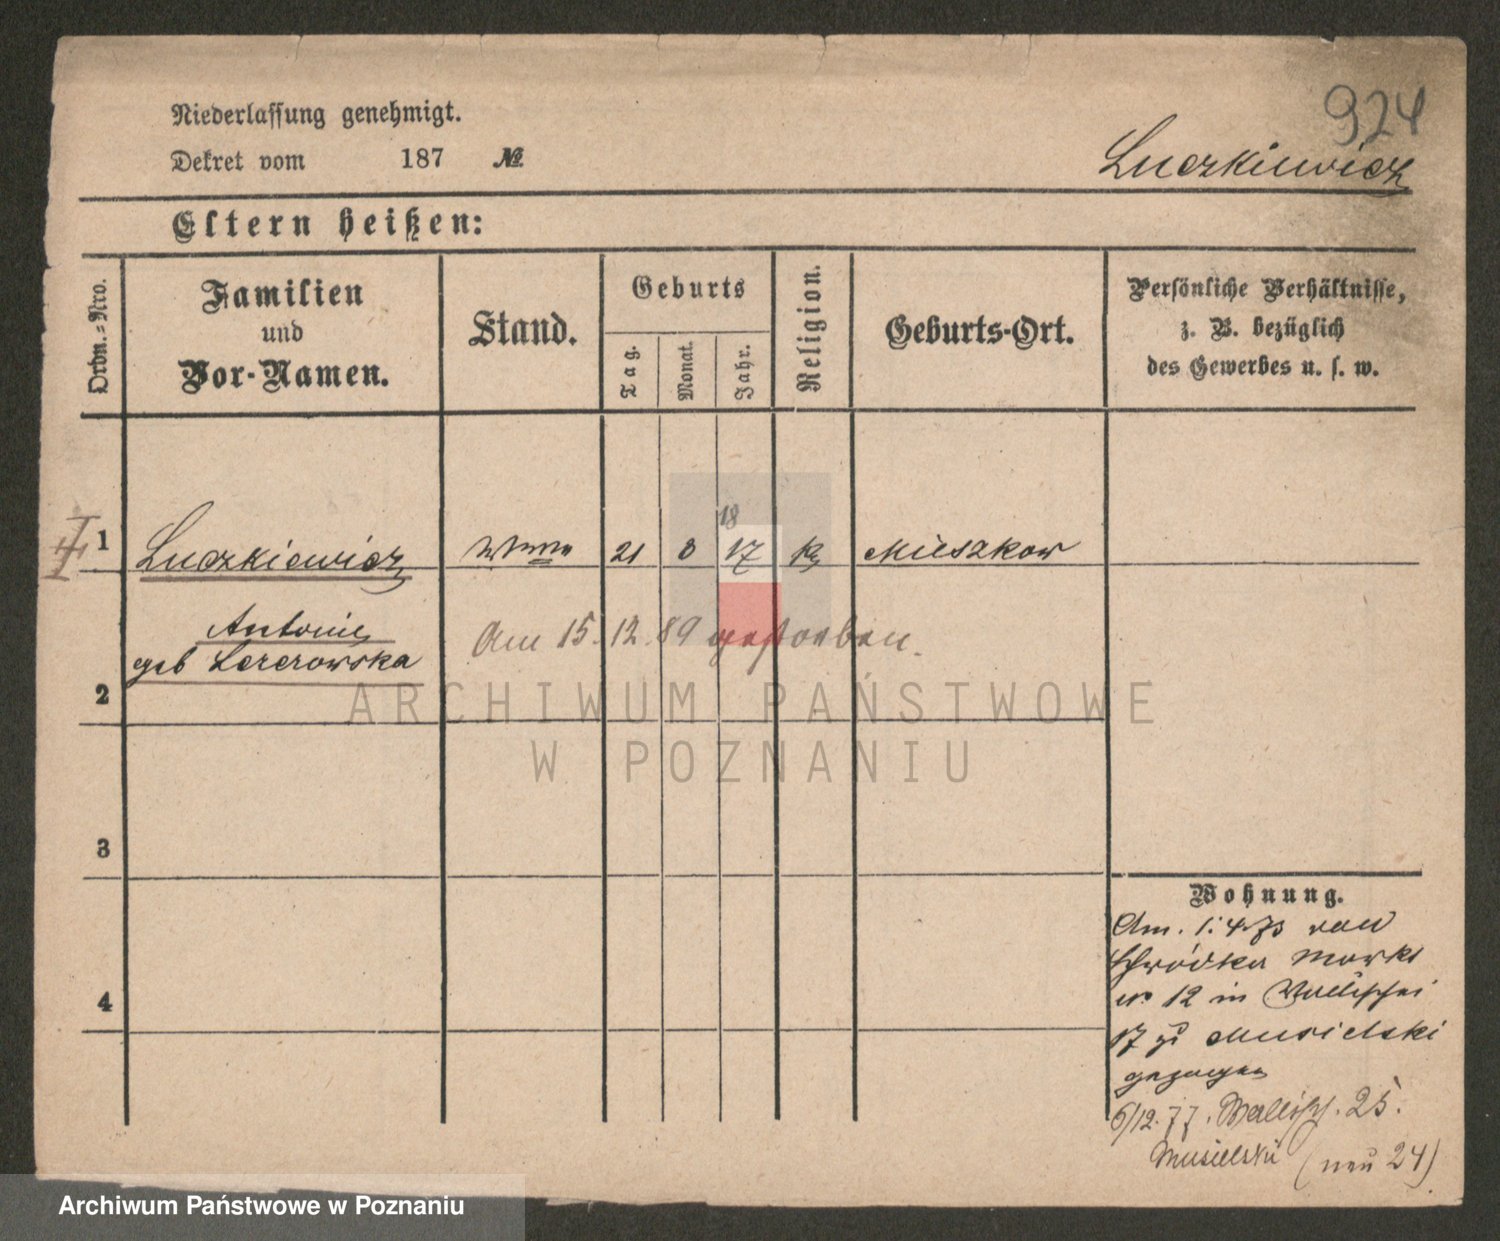 924
Niederlassung genehmigt.
Dekret vom 187 №
Luczkiewicz
Eltern heißen:
Ordn.-Nro.
Familien
und
Vor-Namen.
Stand.
Geburts
Tag.
Monat.
Jahr.
Religion.
Geburts-Ort.
Persönliche Verhältnisse,
z. B. bezüglich
des Gewerbes u. s. w.
18
1 Luczkiewicz 21 8 17 Mieszkow
Antonie
geb
Am 15. 12. 89 gestorben.
2
3
4
Wohnung.
Am. 1.4.73 von
Schrodka Markt
No 12 in Wallischei
17 zu Musielski
gezogen
6/12.77. Wallisch. 25.
Musielski (neu 24)
ARCHIWUM PAŃSTWOWE
W POZNANIU
Archiwum Państwowe w Poznaniu